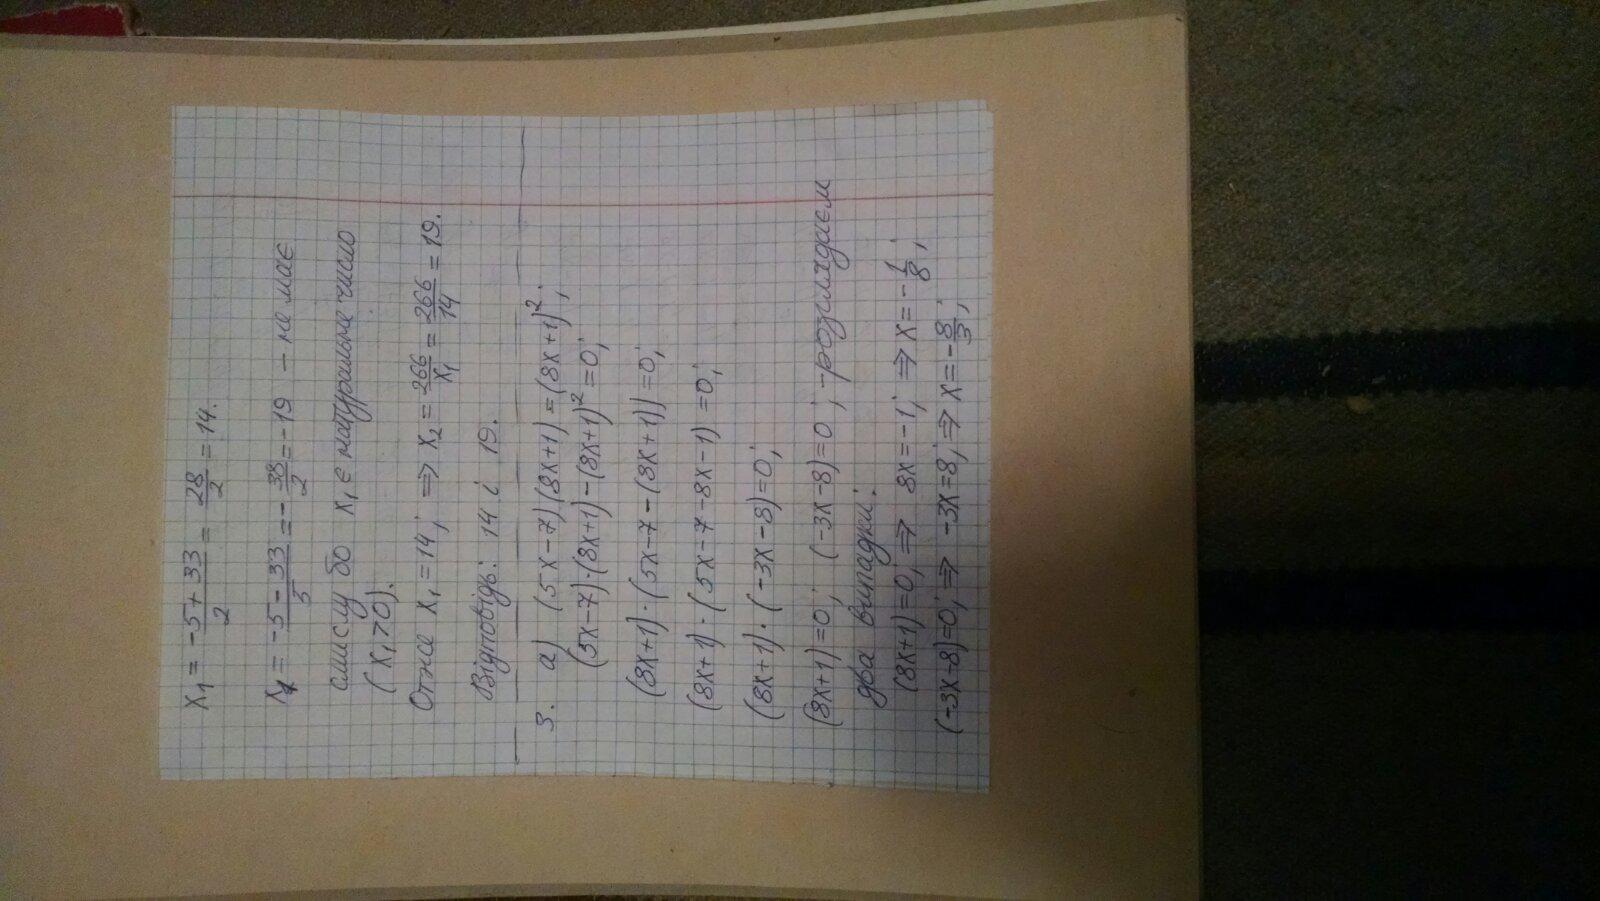 x₁ = (-5+33)/2 = 28/2 = 14.
x₁ = (-5-33)/5 = -38/2 = -19 – не має
смислу бо x₁ є натуральне число
(x₁>0).
Отже x₁=14; ⇒ x₂ = 266/x₁ = 266/14 = 19.
Відповідь: 14 і 19.
3. а) (5x-7)(8x+1)=(8x+1)²;
(5x-7)·(8x+1)-(8x+1)²=0;
(8x+1)·(5x-7-(8x+1))=0;
(8x+1)·(5x-7-8x-1)=0;
(8x+1)·(-3x-8)=0;
(8x+1)=0; (-3x-8)=0; -розглядаєм
два випадки:
(8x+1)=0; ⇒ 8x=-1; ⇒ x=-1/8;
(-3x-8)=0; ⇒ -3x=8; ⇒ x=-8/3;